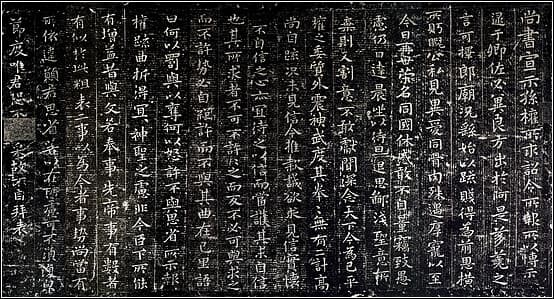 尚書宣示孫權所求詔令所報所以博示
逮于卿佐必冀良方出於阿是芻蕘之
言可擇郎廟況繇始以疏賤得為前恩橫
所盼睨公私見異愛同骨肉殊遇厚寵以至
今日再世榮名同國休慼敢不自量竊致愚
慮仍日達晨坐以待旦退思鄙淺聖意所
棄則又割意不敢獻聞深念天下今為已平
權之委質外震神武度其拳拳無有二計高
尚自疏況未見信今推款誠欲求見信實懷
不自信之心亦宜待之以信而當護其未自信
也其所求者不可不許許之而反不必可與求之
而不許勢必自絕許而不與其曲在己里語
曰何以罰與以奪何以怒許不與思省所示報
權疏曲折得宜宜神聖之慮非今臣下所能
有增益昔與文若奉事先帝事有數者
有似於此粗表二事以為今者事勢尚當有
所依違願君思省若以在所慮可不須復貌
節度唯君恐不可采故不自拜表